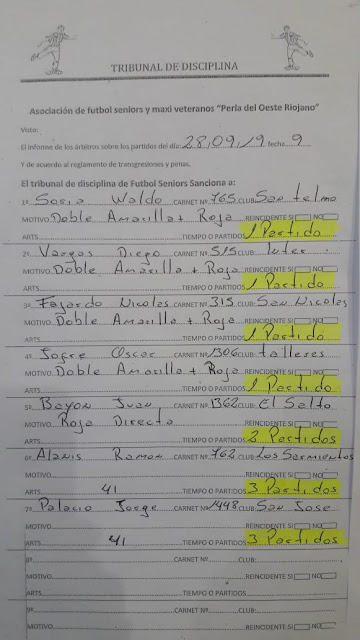 TRIBUNAL DE DISCIPLINA
Asociación de futbol seniors y maxi veteranos "Perla del Oeste Riojano"
Visto:
El informe de los árbitros sobre los partidos del día: 28,09,19 fecha 9
Y de acuerdo al reglamento de transgresiones y penas.
El tribunal de disciplina de Futbol Seniors Sanciona a:
1º Soria Waldo CARNET Nº 765 CLUB: San telmo
MOTIVO Doble Amarilla + Roja REINCIDENTE SI NO
ARTS TIEMPO O PARTIDOS 1 Partido
2º Vargas Diego CARNET Nº 515 CLUB: Inter
MOTIVO Doble Amarilla + Roja REINCIDENTE SI NO
ARTS TIEMPO O PARTIDOS 1 Partido
3º Fajardo Nicolas CARNET Nº 315 CLUB: San Nicolas
MOTIVO Doble Amarilla + Roja REINCIDENTE SI NO
ARTS TIEMPO O PARTIDOS 1 Partido
4º Jofre Oscar CARNET Nº 1306 CLUB: talleres
MOTIVO Doble Amarilla + Roja REINCIDENTE SI NO
ARTS TIEMPO O PARTIDOS 1 Partido
5º Bayon Juan CARNET Nº 1362 CLUB: El Salto
MOTIVO Roja Directa REINCIDENTE SI NO
ARTS TIEMPO O PARTIDOS Partidos
6º Alanis Ramon CARNET Nº 762 CLUB: Los Sarmientos
MOTIVO REINCIDENTE SI NO
ARTS 41 TIEMPO O PARTIDOS 3 Partidos
7º Palacio Jorge CARNET Nº 1448 CLUB: San Jose
MOTIVO REINCIDENTE SI NO
ARTS 41 TIEMPO O PARTIDOS 3 Partidos
8º CARNET Nº CLUB:
MOTIVO REINCIDENTE SI NO
ARTS TIEMPO O PARTIDOS
9º CARNET Nº CLUB:
MOTIVO REINCIDENTE SI NO